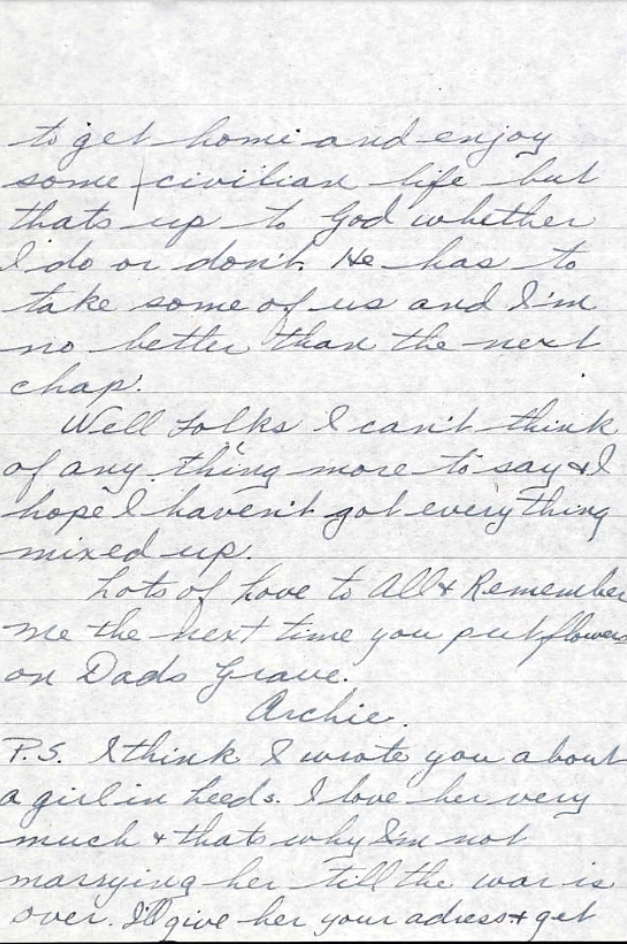 to get home and enjoy
some civilian life but
thats up to God whether
I do or don't. He has to
take some of us and I'm
no better than the next
chap.
Well Folks I can't think
of any thing more to say & I
hope I haven't got everything
mixed up.
Lots of Love to All & Remember
me the next time you put flowers
on Dads Grave.
Archie.
P.S. I think I wrote you about
a girl in Leeds. I love her very
much & thats why I'm not
marrying her till the war is
over. I'll give her your adress & get